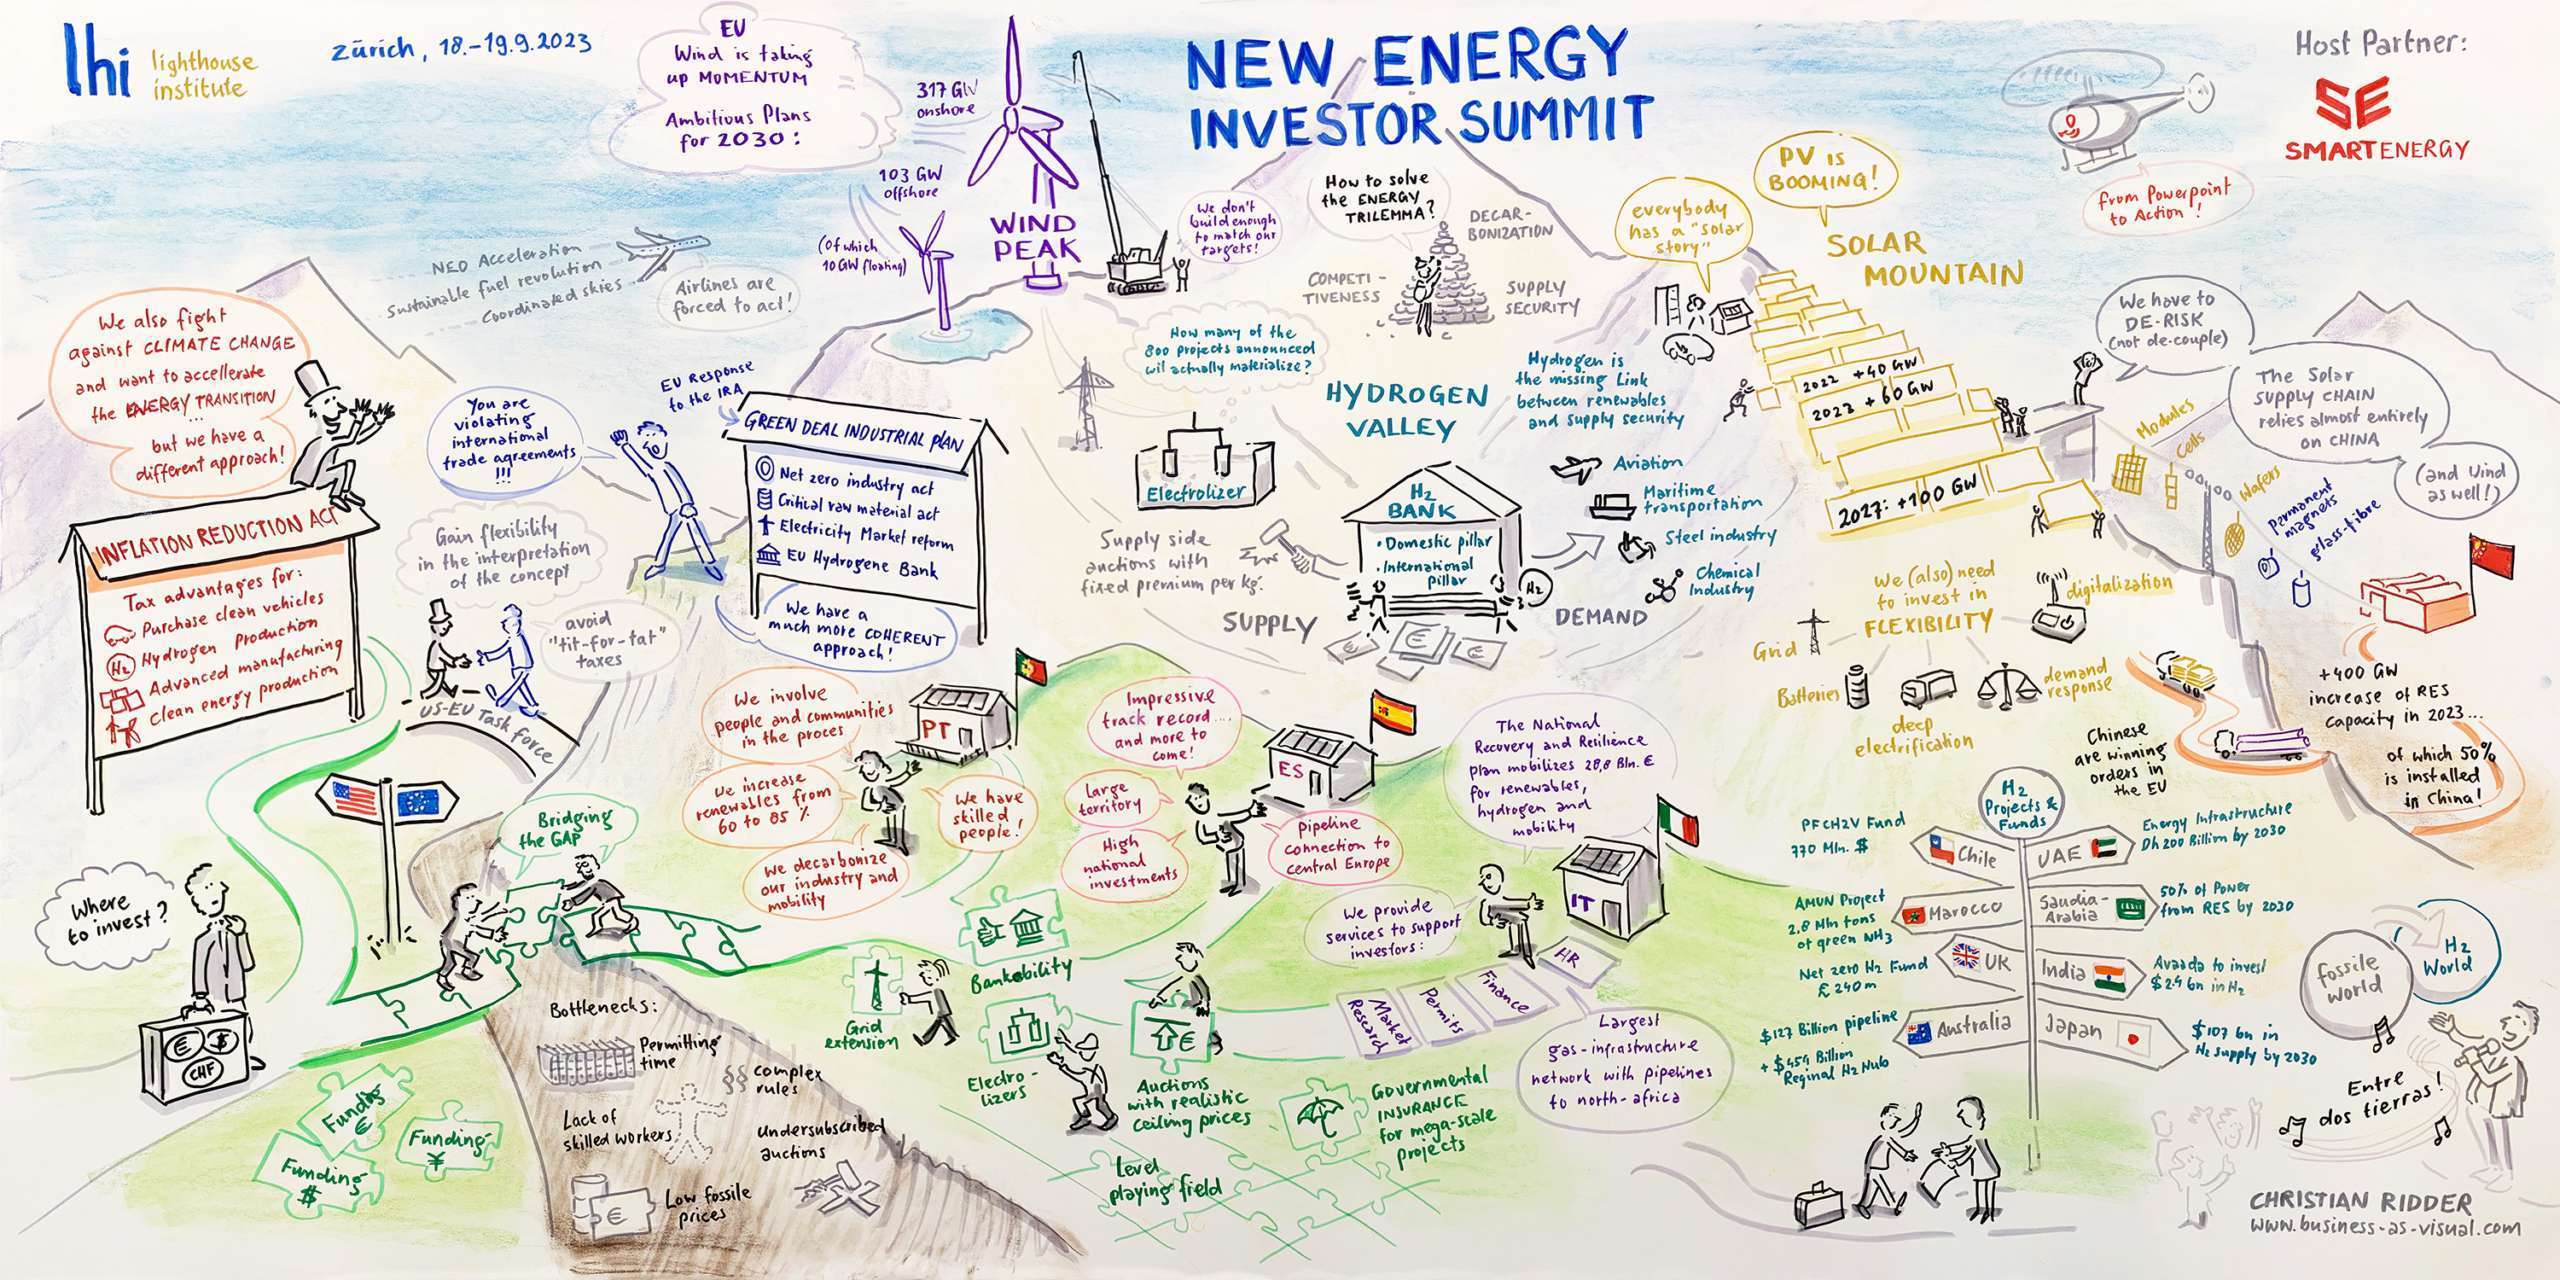 lhi lighthouse
institute
Zürich, 18.-19.9.2023
EU
Wind is taking
up MOMENTUM
Ambitious Plans
for 2030:
317 GW
onshore
103 GW
offshore
(of which
10 GW floating)
WIND
PEAK
We don't
build enough
to match our
targets!
NEW ENERGY
INVESTOR SUMMIT
How to solve
the ENERGY
TRILEMMA?
DECAR-
BONIZATION
COMPETI-
TIVENESS
SUPPLY
SECURITY
everybody
has a "solar
story"
PV is
BOOMING!
SOLAR
MOUNTAIN
2022 +40 GW
2023 +60 GW
2027: +100 GW
from Powerpoint
to Action!
Host Partner:
SE
SMARTENERGY
NEO Acceleration
Sustainable fuel revolution
Coordinated skies
Airlines are
forced to act!
We also fight
against CLIMATE CHANGE
and want to accellerate
the ENERGY TRANSITION
...
but we have a
different approach!
INFLATION REDUCTION ACT
Tax advantages for:
Purchase clean vehicles
H2 Hydrogen Production
Advanced manufacturing
Clean energy production
You are
violating
international
trade agreements
!!!
Gain flexibility
in the interpretation
of the concept
avoid
"tit-for-tat"
taxes
US-EU Task Force
EU Response
to the IRA
GREEN DEAL INDUSTRIAL PLAN
Net zero industry act
Critical raw material act
Electricity Market reform
EU Hydrogene Bank
We have a
much more COHERENT
approach!
How many of the
800 projects announced
wil actually materialize?
HYDROGEN
VALLEY
Hydrogen is
the missing Link
between renewables
and supply security
Electrolizer
Supply side
auctions with
fixed premium per kg.
SUPPLY
H2
BANK
• Domestic pillar
• International
pillar
€
€
€
H2
DEMAND
Aviation
Maritime
transportation
Steel industry
Chemical
Industry
We have to
DE-RISK
(not de-couple)
The Solar
SUPPLY CHAIN
relies almost entirely
on CHINA
(and Wind
as well!)
Modules
Cells
Wafers
Permanent
magnets
glass-fibre
We (also) need
to invest in
FLEXIBILITY
digitalization
Grid
Batteries
deep
electrification
demand
response
+400 GW
increase of RES
capacity in 2023...
of which 50%
is installed
in China!
Chinese
are winning
orders in
the EU
Where
to invest?
€
$
CHF
Bridging
the GAP
Funding
€
Funding
$
Funding
¥
Bottlenecks:
Permitting
time
§§ complex
rules
Lack of
skilled workers
undersubscribed
auctions
€
Low fossile
prices
We involve
people and communities
in the proces
We increase
renewables from
60 to 85 %
We have
skilled
people!
We decarbonize
our industry and
mobility
PT
Impressive
track record....
and more to
come!
Large
territory
High
national
investments
Pipeline
connection to
central Europe
ES
The National
Recovery and Resilience
plan mobilizes 28,8 Bln. €
for renewables,
hydrogen and
mobility
IT
We provide
services to support
investors:
Market
Research
Permits
Finance
HR
Largest
gas-infrastructure
network with pipelines
to north-africa
Bankability
Grid
extension
Electro-
lizers
€
Auctions
with realistic
ceiling prices
Governmental
INSURANCE
for mega-scale
projects
Level
playing field
H2
Projects &
Funds
PFCH2V Fund
770 Mln. $
Chile
UAE
Energy Infrastructure
Dh 200 Billion by 2030
AMUN Project
2.8 Mln tons
of green NH3
Marocco
Saudia-
Arabia
50% of Power
from RES by 2030
Net zero H2 Fund
£ 240 m
UK
India
Avaada to invest
in H2
$127 Billion pipeline
Billion
Reginal H2 Hub
Australia
Japan
bn in
H2 supply by 2030
fossile
world
H2
World
Entre
dos tierras!
CHRISTIAN RIDDER
www.business-as-visual.com